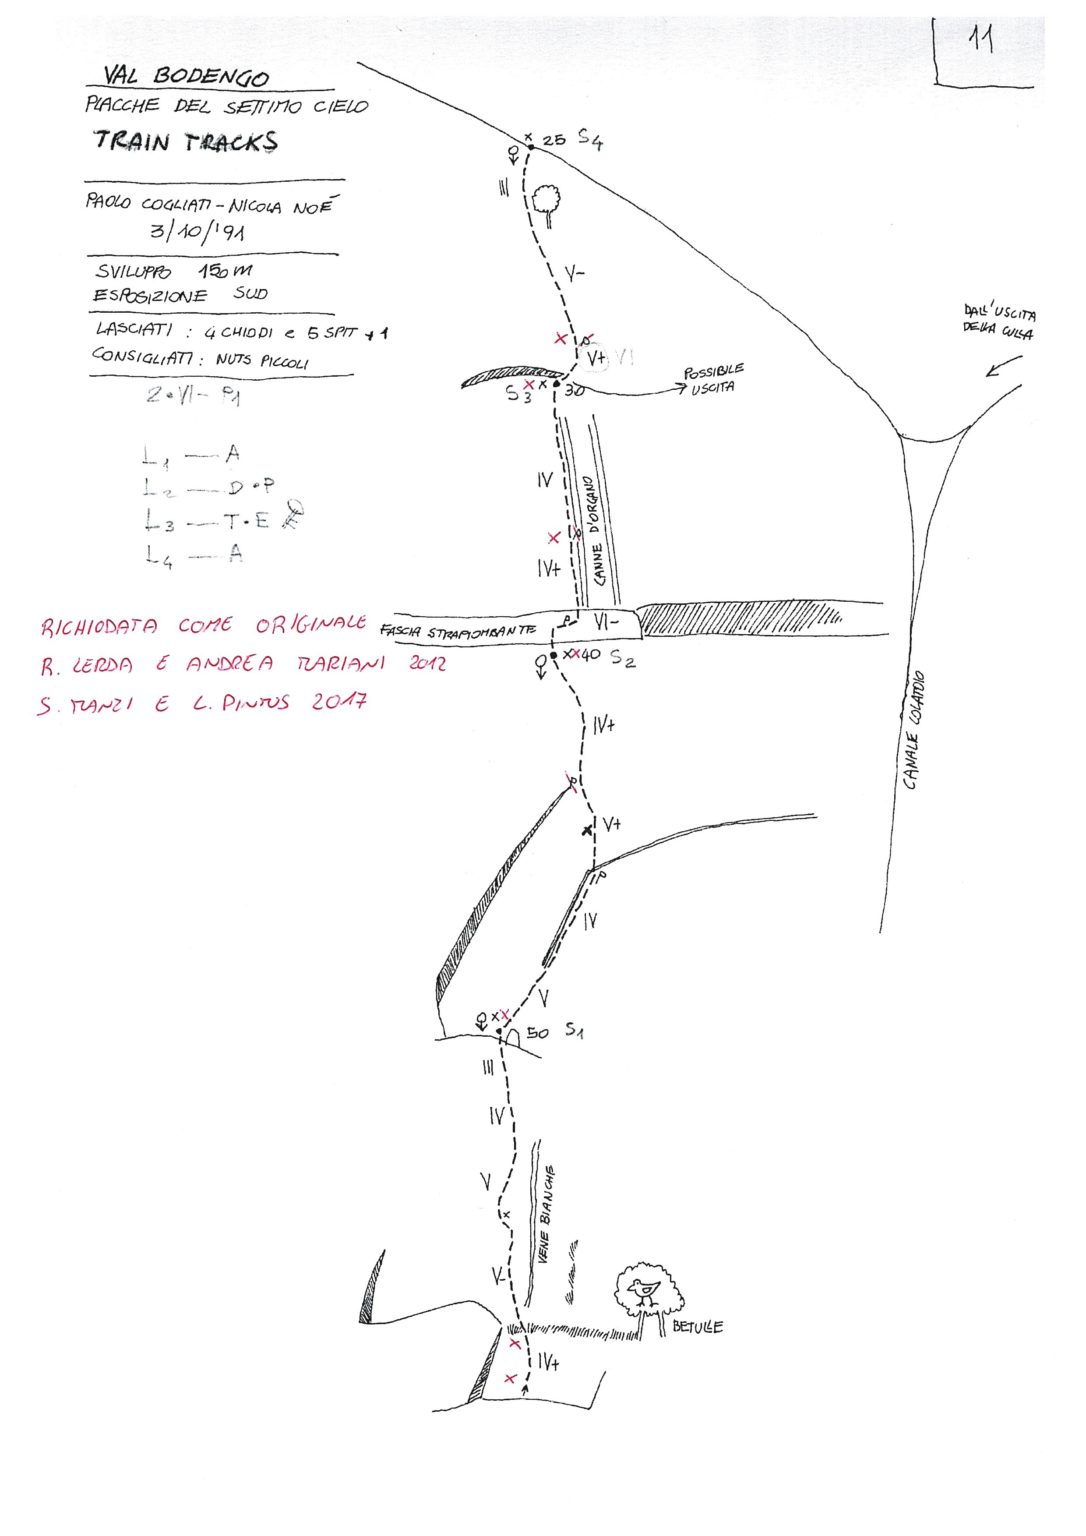 11
VAL BODENGO
PLACCHE DEL SETTIMO CIELO
TRAIN TRACKS
PAOLO COGLIATI - NICOLA NOÉ
3/10/'91
SVILUPPO 150 m
ESPOSIZIONE SUD
LASCIATI : 4 CHIODI e 5 SPIT +1
CONSIGLIATI : NUTS PICCOLI
L1 — A
L2 — D·P
L3 — T·E
L4 — A
RICHIODATA COME ORIGINALE
R. LERDA E ANDREA MARIANI 2012
S. MANZI E L. PINTUS 2017
x 25 S4
III
V-
DALL'USCITA
DELLA CULLA
V+ VI
POSSIBILE
USCITA
S3 x x 30
IV
CANNE D'ORGANO
IV+
VI-
FASCIA STRAPIOMBANTE
xx40 S2
CANALE COLATOIO
IV+
P
V+
P
IV
V
xx
50 S1
III
IV
V
VENE BIANCHE
V-
BETULLE
IV+